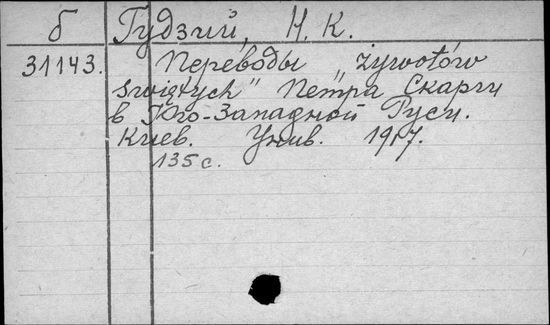 б Гудзий, Н. К.
31143. Переводы „żywotów
świętych" Петра Скарги
в Юго-Западной Руси.
Киев. Унив. 1917.
135 с.